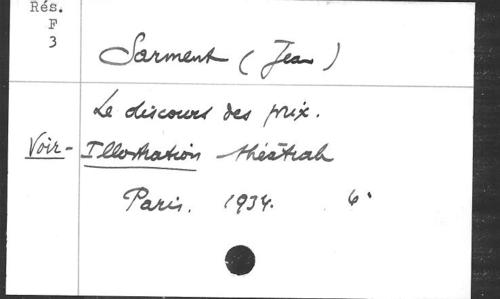 Rés.
F
3
Sarment (Jean)
Le discours des prix.
Voir - Illustration théâtrale
Paris. 1934. 6°